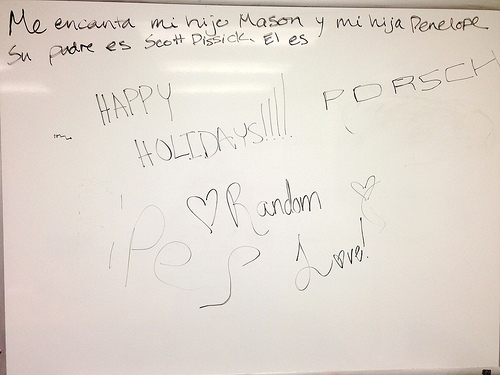 Me encanta mi hijo Mason y mi hija Penelope
Su padre es Scott Dissick. El es
HAPPY
HOLIDAYS!!!!!
PORSCH
♡ Random
Love!